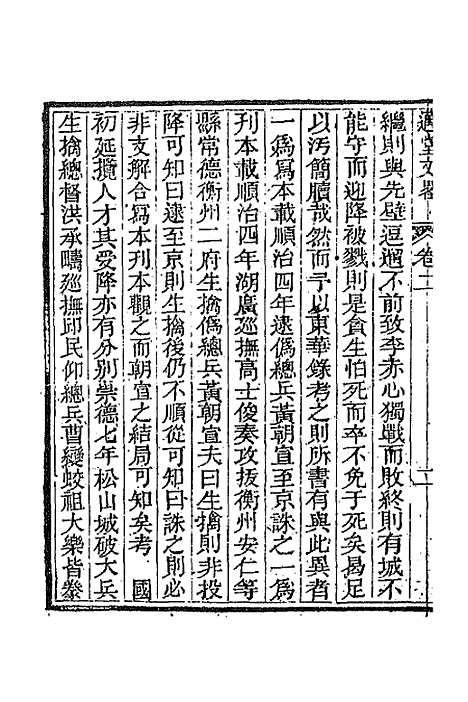 遜堂文畧 卷二 二
繼則與先壁逗遛不前致李赤心獨戰而敗終則有城不
能守而迎降被戮則是貪生怕死而卒不免于死矣曷足
以汚簡牘哉然而予以東華錄考之則所書有與此異者
一爲寫本載順治四年逮僞總兵黃朝宣至京誅之一爲
刊本載順治四年湖廣廵撫高士俊奏攻拔衡州安仁等
縣常德衡州二府生擒僞總兵黃朝宣夫曰生擒則非投
降可知曰逮至京則生擒後仍不順從可知曰誅之則必
非支解合寫本刊本觀之而朝宣之結局可知矣考 國
初延攬人才其受降亦有分別崇德七年松山城破大兵
生擒總督洪承疇廵撫邱民仰總兵曹變蛟祖大樂皆縶